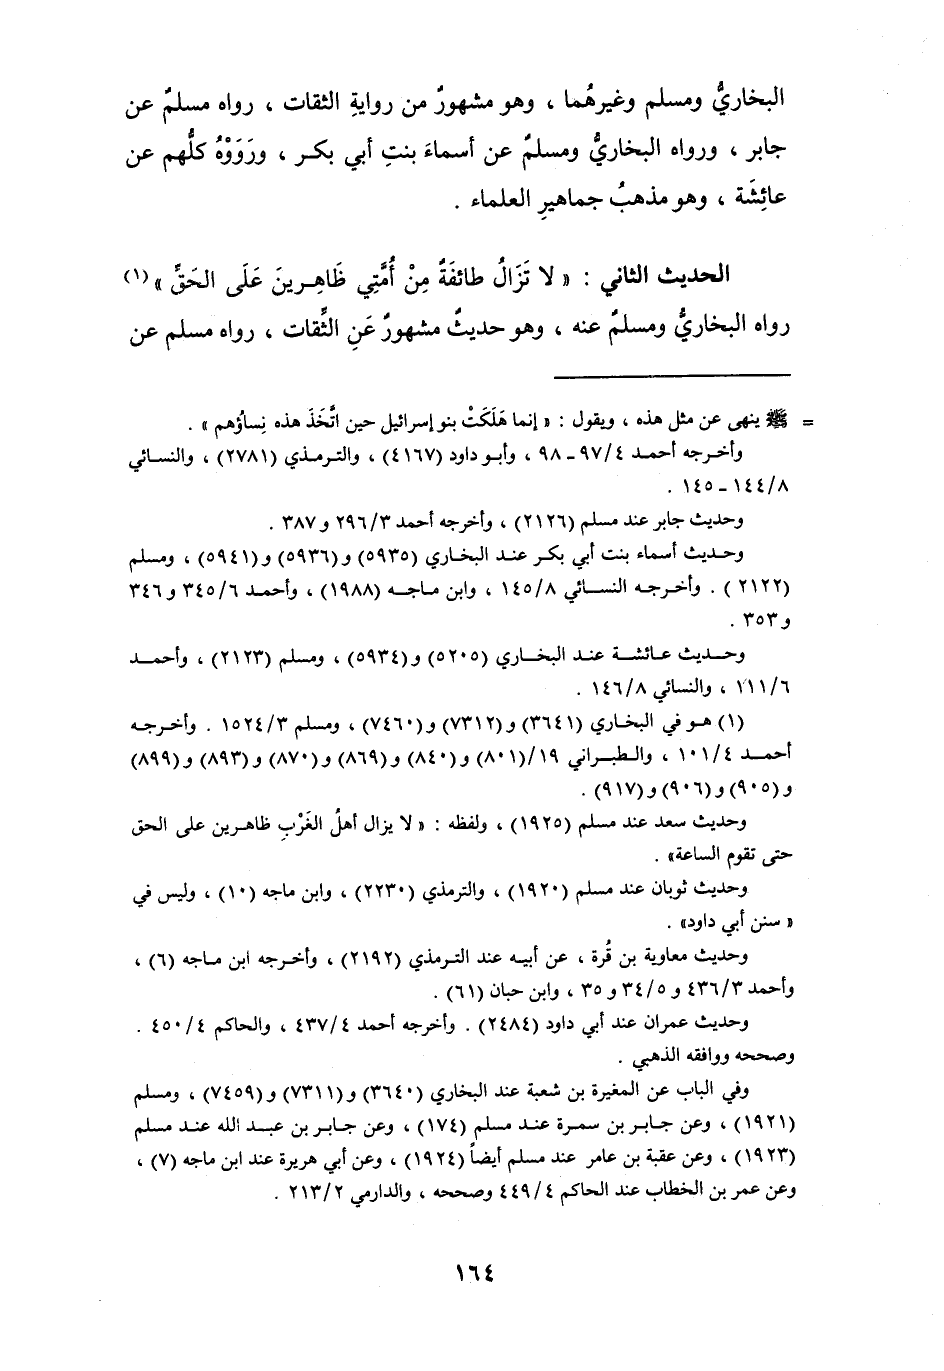 البخاريُّ ومسلم وغيرهُما ، وهو مشهورٌ من روايةِ الثقات ، رواه مسلمٌ عن
جابر ، ورواه البخاريُّ ومسلمٌ عن أسماءَ بنتِ أبي بكر ، ورَوَوْهُ كلُّهم عن
عائِشَة ، وهو مذهبُ جماهيرِ العلماء .
الحديث الثاني : « لا تَزَالُ طائفَةٌ مِنْ أُمَّتِي ظَاهِرينَ عَلَى الحَقِّ »(١)
رواه البخاريُّ ومسلمٌ عنه ، وهو حديثٌ مشهورٌ عَنِ الثِّقات ، رواه مسلم عن
= ﷺ ينهى عن مثل هذه ، ويقول : « إنما هَلَكَتْ بنو إسرائيل حين اتَّخَذَ هذه نِساؤُهم » .
وأخرجه أحمد ٤/٩٧ - ٩٨ ، وأبو داود (٤١٦٧) ، والترمذي (٢٧٨١) ، والنسائي
٨/١٤٤ - ١٤٥ .
وحديث جابر عند مسلم (٢١٢٦) ، وأخرجه أحمد ٣/٢٩٦ و٣٨٧ .
وحديث أسماء بنت أبي بكر عند البخاري (٥٩٣٥) و(٥٩٣٦) و(٥٩٤١) ، ومسلم
(٢١٢٢ ) . وأخرجه النسائي ٨/١٤٥ ، وابن ماجه (١٩٨٨) ، وأحمد ٦/٣٤٥ و٣٤٦
و٣٥٣ .
وحديث عائشة عند البخاري (٥٢٠٥) و(٥٩٣٤) ، ومسلم (٢١٢٣) ، وأحمد
٦/١١١ ، والنسائي ٨/١٤٦ .
(١) هو في البخاري (٣٦٤١) و(٧٣١٢) و(٧٤٦٠) ، ومسلم ٣/١٥٢٤ . وأخرجه
أحمد ٤/١٠١ ، والطبراني ١٩/(٨٠١) و(٨٤٠) و(٨٦٩) و(٨٧٠) و(٨٩٣) و(٨٩٩)
و(٩٠٥) و(٩٠٦) و(٩١٧) .
وحديث سعد عند مسلم (١٩٢٥) ، ولفظه : « لا يزال أهلُ الغَرْبِ ظاهرين على الحق
حتى تقوم الساعة» .
وحديث ثوبان عند مسلم (١٩٢٠) ، والترمذي (٢٢٣٠) ، وابن ماجه (١٠) ، وليس في
« سنن أبي داود» .
وحديث معاوية بن قُرة ، عن أبيه عند الترمذي (٢١٩٢) ، وأخرجه ابن ماجه (٦) ،
وأحمد ٣/٤٣٦ و ٥/٣٤ و ٣٥ ، وابن حبان (٦١) .
وحديث عمران عند أبي داود (٢٤٨٤) . وأخرجه أحمد ٤/٤٣٧ ، والحاكم ٤/٤٥٠ .
وصححه ووافقه الذهبي .
وفي الباب عن المغيرة بن شعبة عند البخاري (٣٦٤٠) و(٧٣١١) و(٧٤٥٩) ، ومسلم
(١٩٢١) ، وعن جابر بن سمرة عند مسلم (١٧٤) ، وعن جابر بن عبد الله عند مسلم
(١٩٢٣) ، وعن عقبة بن عامر عند مسلم أيضاً (١٩٢٤) ، وعن أبي هريرة عند ابن ماجه (٧) ،
وعن عمر بن الخطاب عند الحاكم ٤/٤٤٩ وصححه ، والدارمي ٢/٢١٣ .
١٦٤